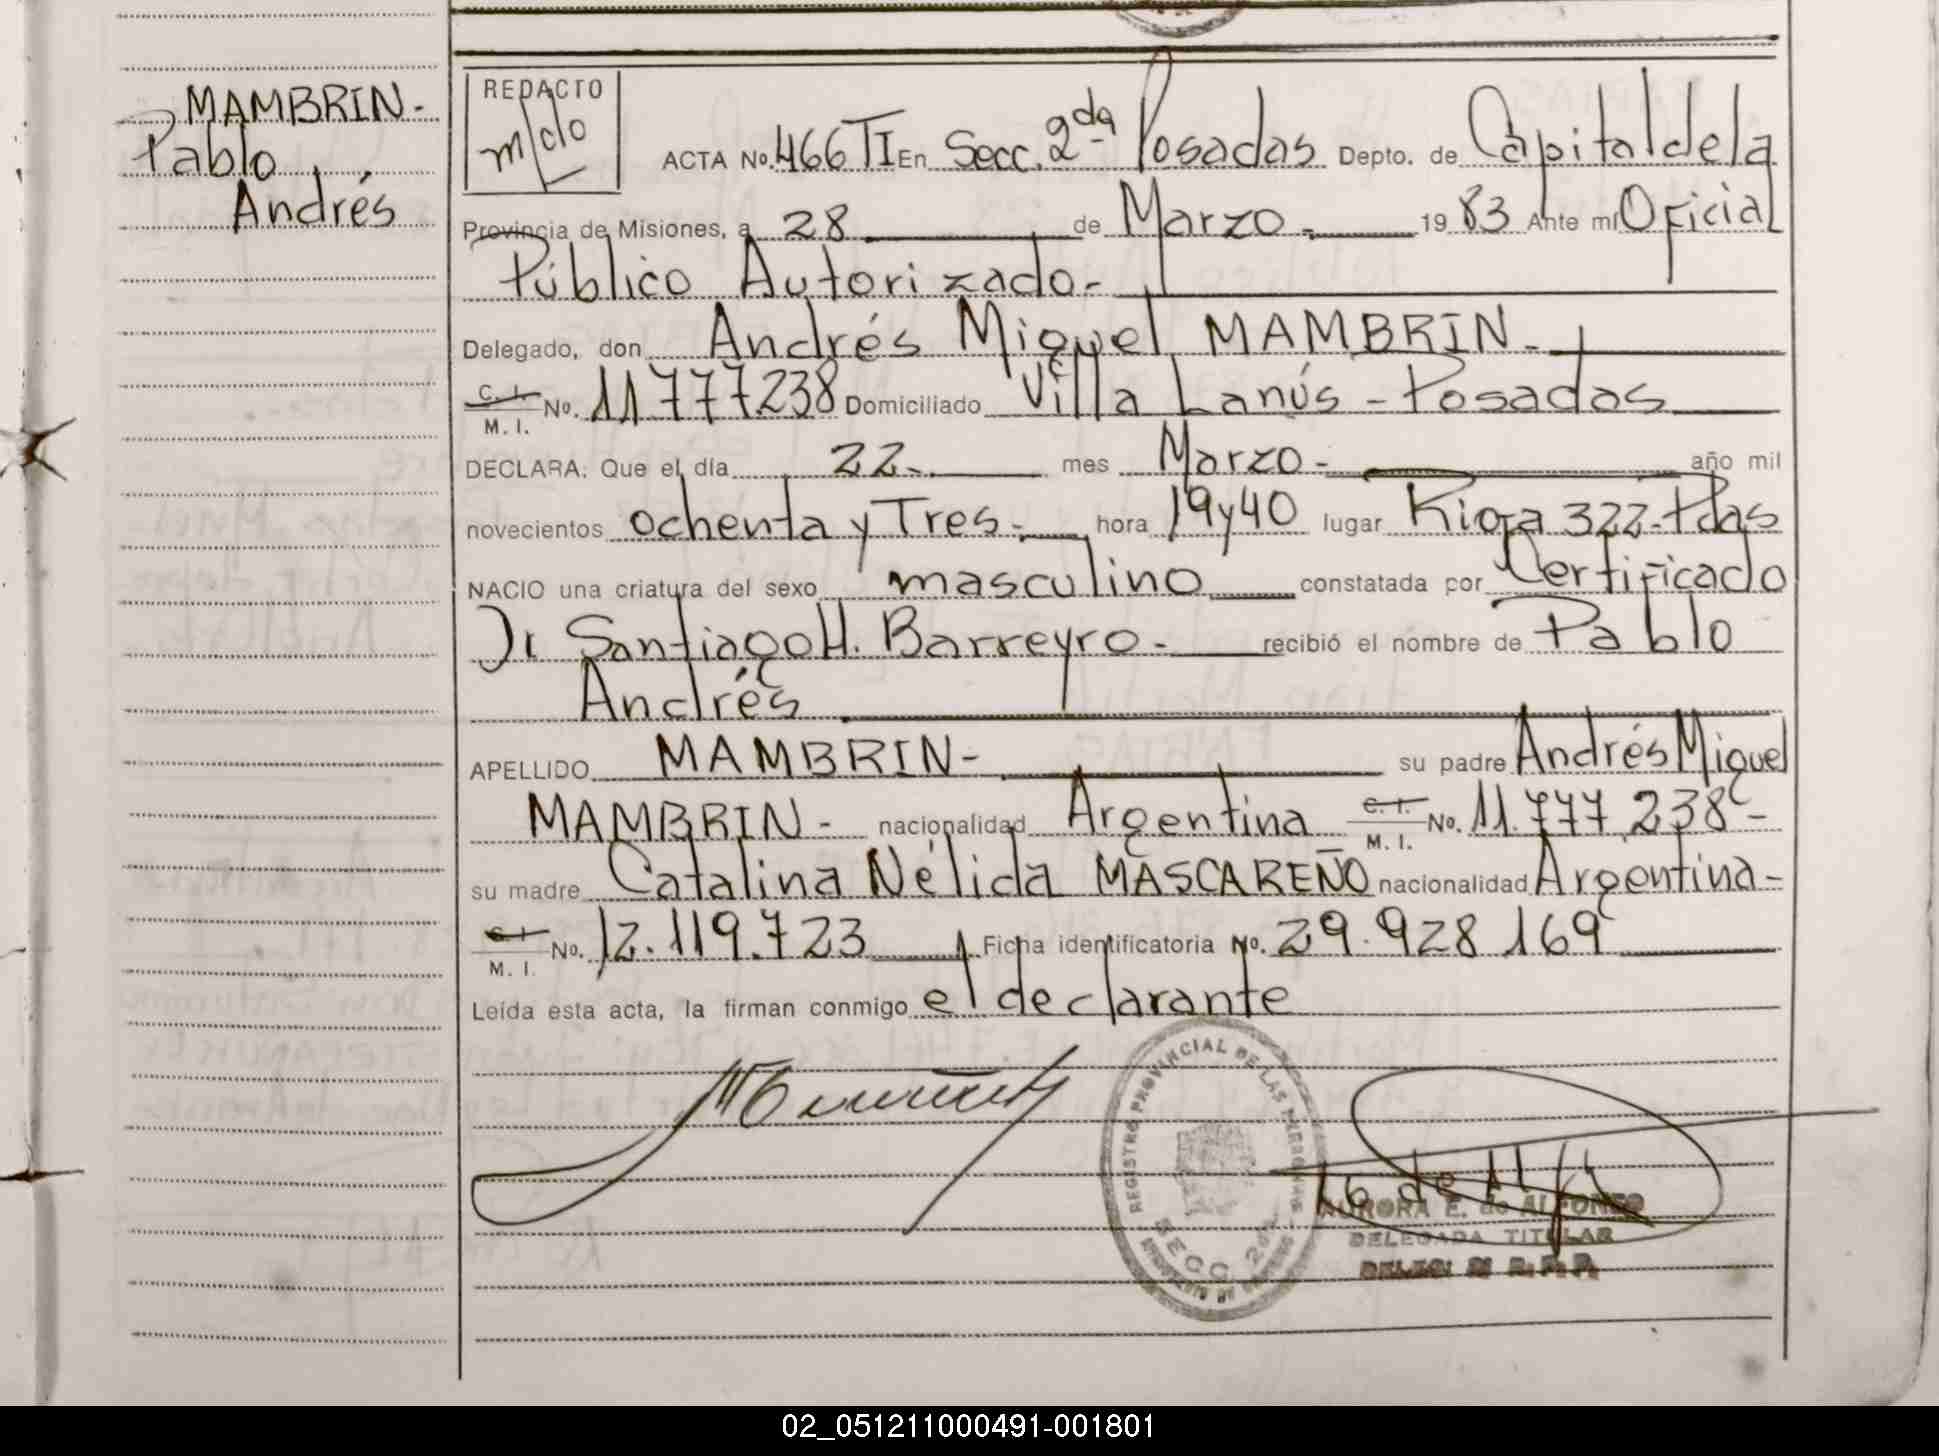 MAMBRIN-
Pablo
Andrés
REDACTO
ACTA No. 466 TI En Secc. 2da Posadas Depto. de Capital de la
Provincia de Misiones, a 28 de Marzo - 1983 Ante mí Oficial
Público Autorizado-
Delegado, don Andrés Miguel MAMBRIN-
C. I. M. I. No. 11777238 Domiciliado Villa Lanús - Posadas
DECLARA: Que el día 22- mes Marzo - año mil
novecientos ochenta y Tres- hora 19y40 lugar Rioja 322-Pdas
NACIO una criatura del sexo masculino constatada por Certificado
Dr Santiago H. Barreyro - recibió el nombre de Pablo
Andrés
APELLIDO MAMBRIN - su padre Andrés Miguel
MAMBRIN - nacionalidad Argentina C. I. M. I. No. 11.777.238-
su madre Catalina Nélida MASCAREÑO nacionalidad Argentina-
C. I. M. I. No. 12.119.723 Ficha identificatoria No. 29.928.169
Leída esta acta, la firman conmigo el declarante
REGISTRO PROVINCIAL DE LAS PERSONAS
SECC. 2da
AURORA E. de ALFONSO
DELEGADA TITULAR
02_051211000491-001801